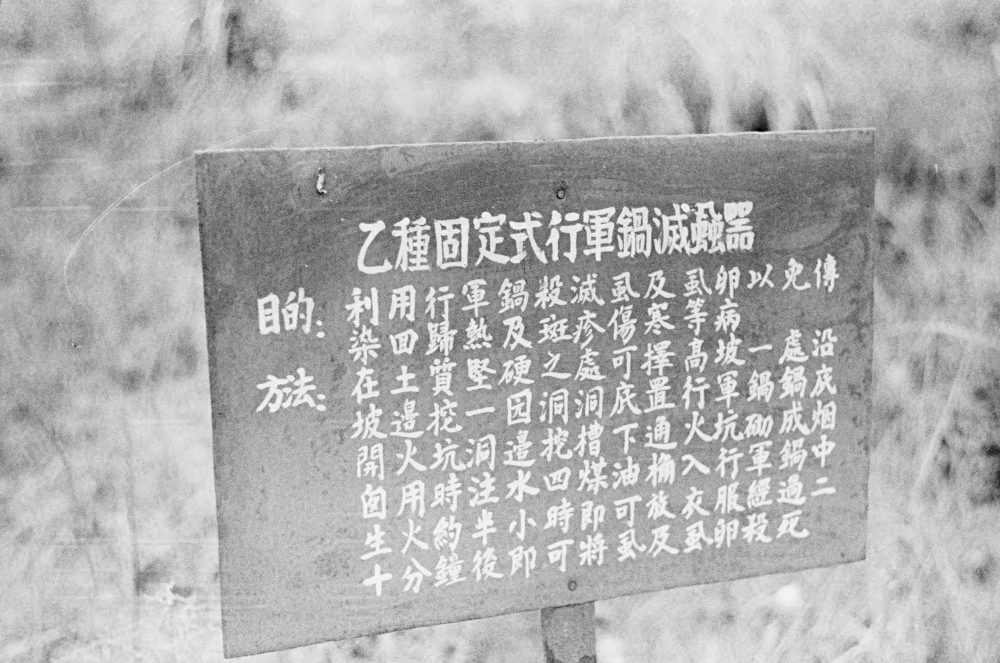 乙種固定式行軍鍋滅蝨器
目的：利用行軍鍋殺滅虱及虱卵以免傳
染回歸熱及斑疹傷寒等病
方法：在土質堅硬之處可擇高坡一處沿
坡邊挖一因洞洞底置行軍鍋鍋底
開火坑洞邊挖槽下通火坑砌成烟
囪用時注水四煤油桶入行軍鍋中
生火約半小時即可放衣服經過二
十分鐘後即可將虱及虱卵殺死